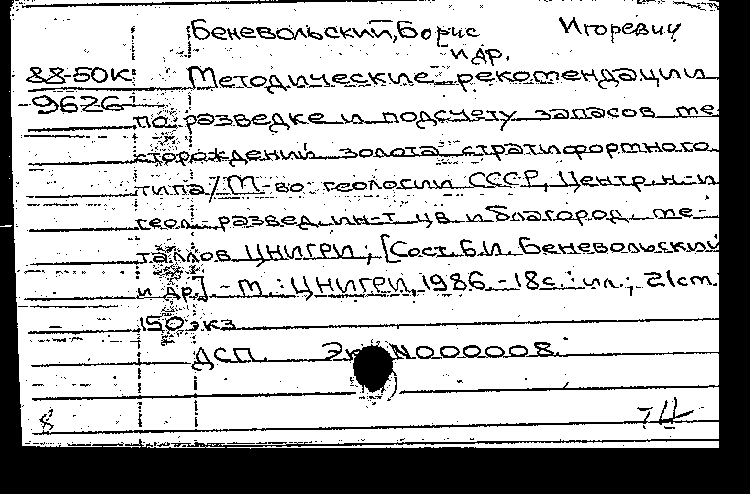 Беневольский, Борис Игоревич
и др.
88-50к Методические рекомендации
-9626- по разведке и подсчету запасов ме-
сторождений золота стратиформного
типа/М-во геологии СССР, Центр. н.-и.
геол.-развед. ин-т цв. и благород. ме-
таллов ЦНИГРИ; [Сост. Б.И. Беневольский
и др.] - М.: ЦНИГРИ, 1986. - 18с.: ил.; 21см.
150 экз
ДСП. Эк N000008.
8